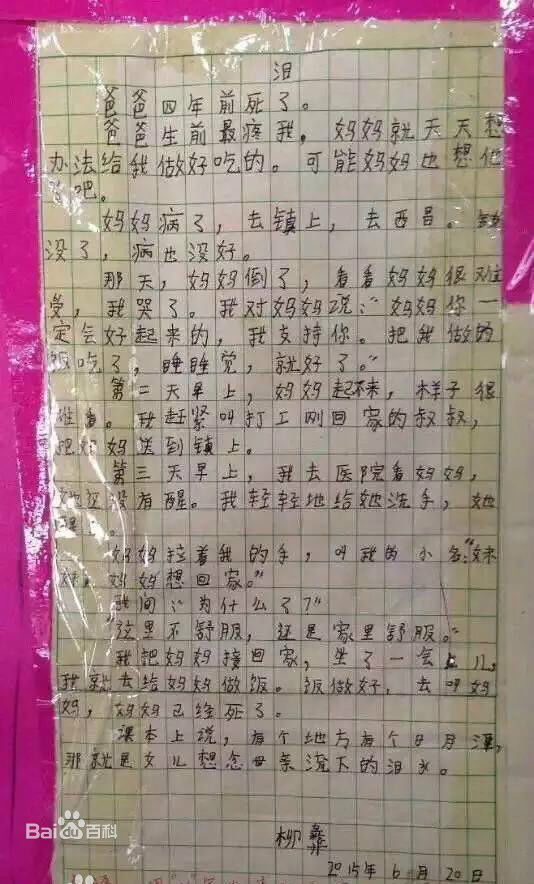 泪
爸爸四年前死了。
爸爸生前最疼我，妈妈就天天想
办法给我做好吃的。可能妈妈也想他
了吧。
妈妈病了，去镇上，去西昌。钱
没了，病也没好。
那天，妈妈倒了，看看妈妈很难
受，我哭了。我对妈妈说：“妈妈你一
定会好起来的，我支持你。把我做的
饭吃了，睡睡觉，就好了。”
第二天早上，妈妈起不来，样子很
难看。我赶紧叫打工刚回家的叔叔，
把妈妈送到镇上。
第三天早上，我去医院看妈妈，
她还没有醒。我轻轻地给她洗手，她
醒了。
妈妈拉着我的手，叫我的小名：“妹
妹，妈妈想回家。”
我问：“为什么了？”
“这里不舒服，还是家里舒服。”
我把妈妈接回家，坐了一会儿，
我就去给妈妈做饭。饭做好，去叫妈
妈，妈妈已经死了。
课本上说，有个地方有个日月潭，
那就是女儿想念母亲流下的泪水。
柳彝
2015年6月20日
Bai百科